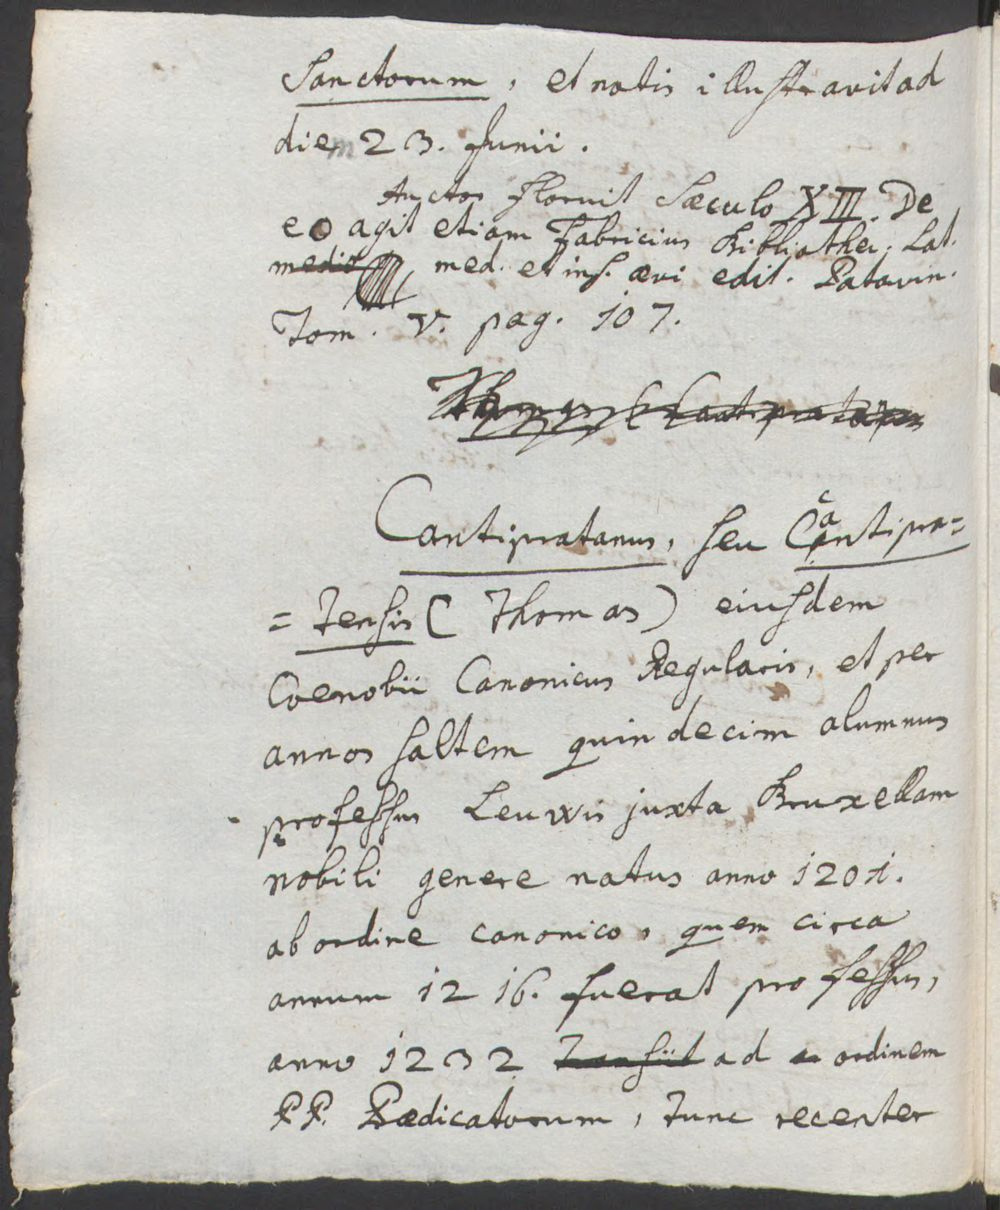 Sanctorum, et notis illustravit ad
diem 23. Junii.
Auctor floruit Sæculo XIII. De
eo agit etiam Fabricius Bibliothec. Lat.
mediæ med. et inf. ævi edit. Patavin.
Tom. V. pag. 107.
Cantipratanus, seu Cantipra=
=tensis (Thomas) eiusdem
Coenobii Canonicus Regularis, et per
annos saltem quindecim alumnus
professus Leuwis juxta Bruxellam
nobili genere natus anno 1201.
ab ordine canonico, quem circa
annum 1216. fuerat professus,
anno 1232 transiit ad ordinem
PP. Prædicatorum, tunc recenter